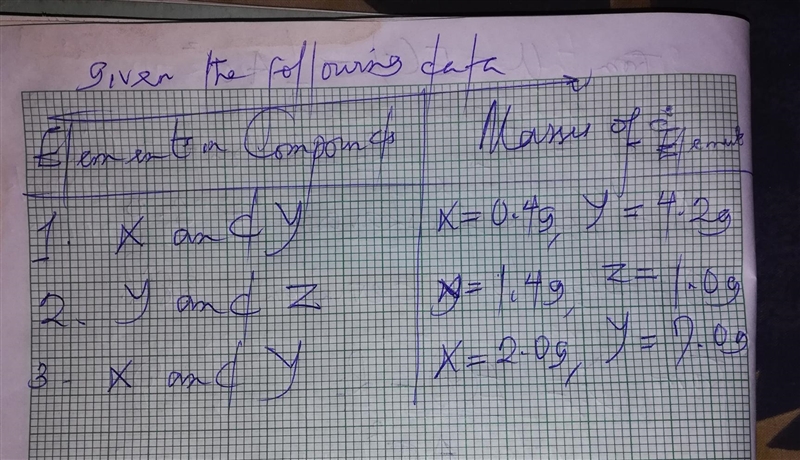 given the following data
Element in Compounds Mass of Elements
1. X and Y X = 0.4g, Y = 4.2g
2. Y and Z y = 1.4g, Z = 1.0g
3- X and Y X = 2.0g, Y = 7.0g